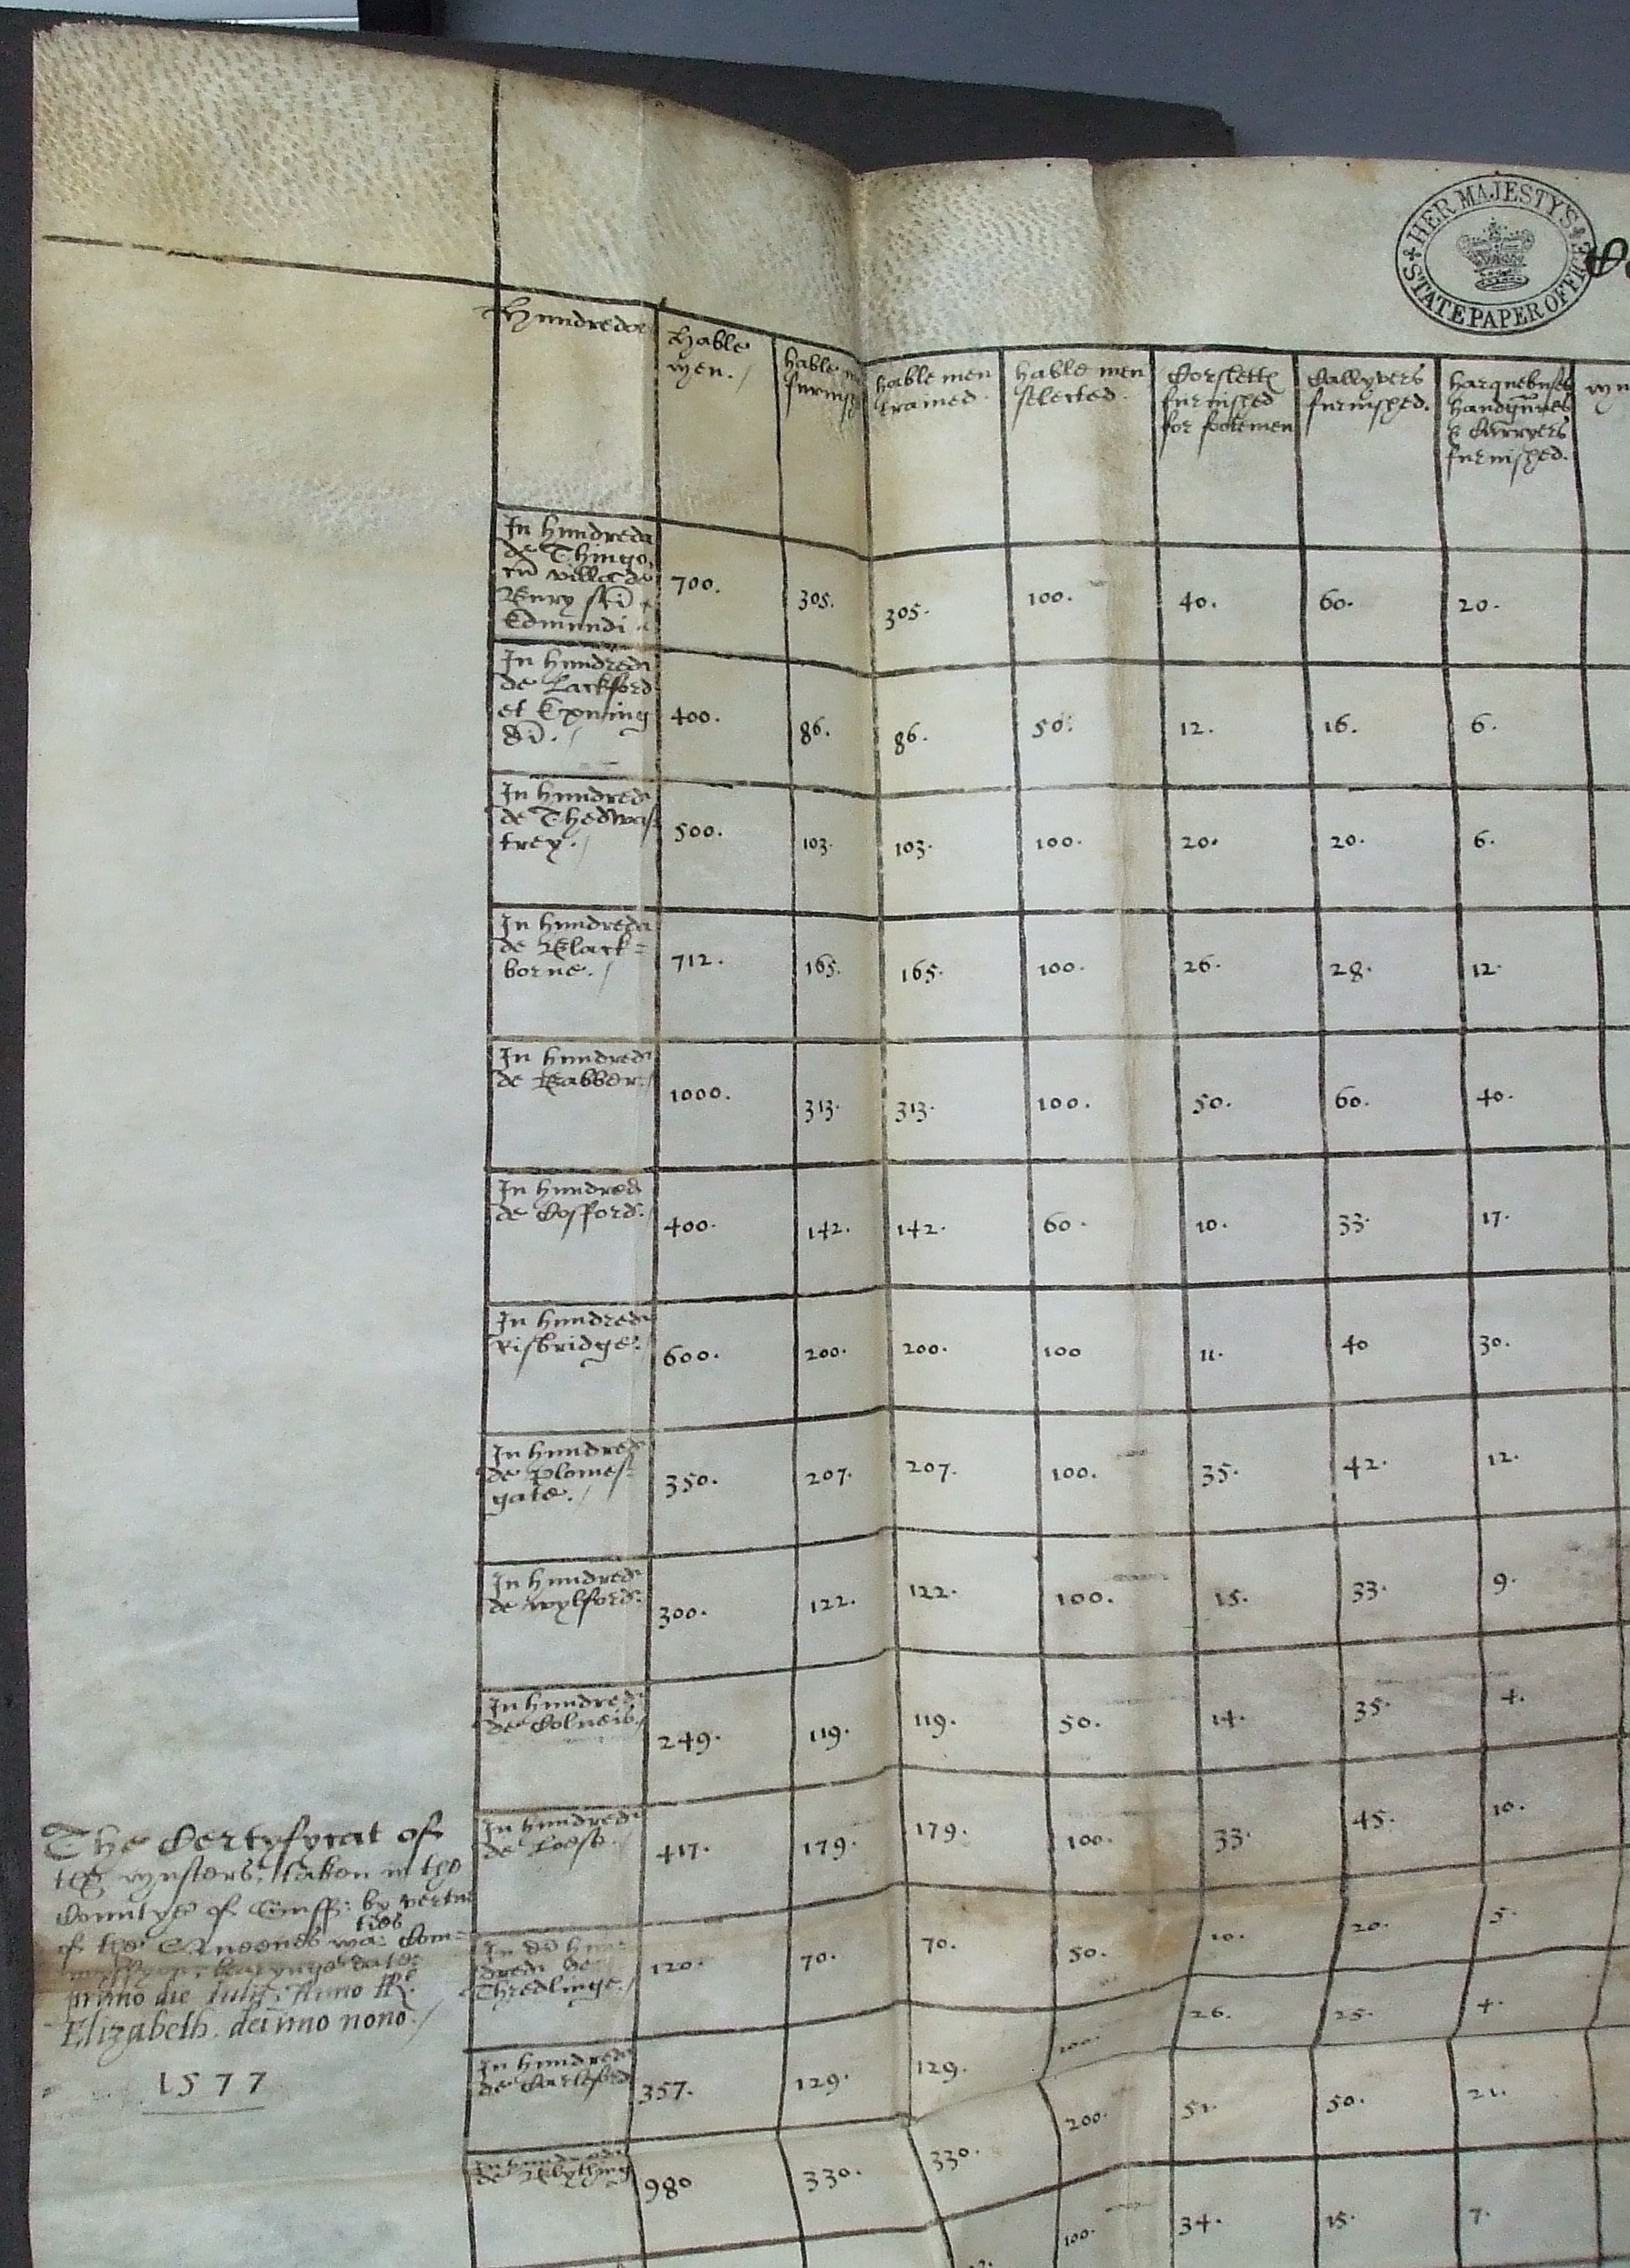 HER MAJESTY'S STATE PAPER OFFICE
Hundreda
Hable
men.
hable
furnisshed
hable men
trained.
hable men
selected.
Corslett
furnisshed
for footemen
Callyvers
furnisshed.
harquebuses
handgunes
& Curryers
furnisshed.
In hundreda
de Thingo,
cu villa de
Bury sci
Edmundi
700. 305. 305. 100. 40. 60. 20.
In hundred
de Lackford
et Exning
di.
400. 86. 86. 50. 12. 16. 6.
In hundred
de Thedwas
trey.
500. 103. 103. 100. 20. 20. 6.
In hundreda
de Black=
borne.
712. 165. 165. 100. 26. 28. 12.
In hundred
de Babber.
1000. 313. 313. 100. 50. 60. 40.
In hundred
de Cosford.
400. 142. 142. 60. 10. 33. 17.
In hundred
Risbridge.
600. 200. 200. 100 11. 40 30.
In hundred
de Plomes=
gate.
350. 207. 207. 100. 35. 42. 12.
In hundred
de Wylford.
300. 122. 122. 100. 15. 33. 9.
In hundred
de Colneis.
249. 119. 119. 50. 14. 35. 4.
In hundred
de Loose.
417. 179. 179. 100. 33. 45. 10.
In di hun=
dred de
Thredlinge.
120. 70. 70. 50. 10. 20. 5.
In hundred
de Carleford
357. 129. 129. 100. 26. 25. 4.
In hundred
de Blything
980 330. 330. 200. 51. 50. 21.
100. 34. 15. 7.
The Certyfycat of
the musters, taken in the
Countye of Suff: by vertue
of the Queenes Maties Com=
myssyon, bearynge date
primo die Julij. Anno RR
Elizabeth. decimo nono.
1577